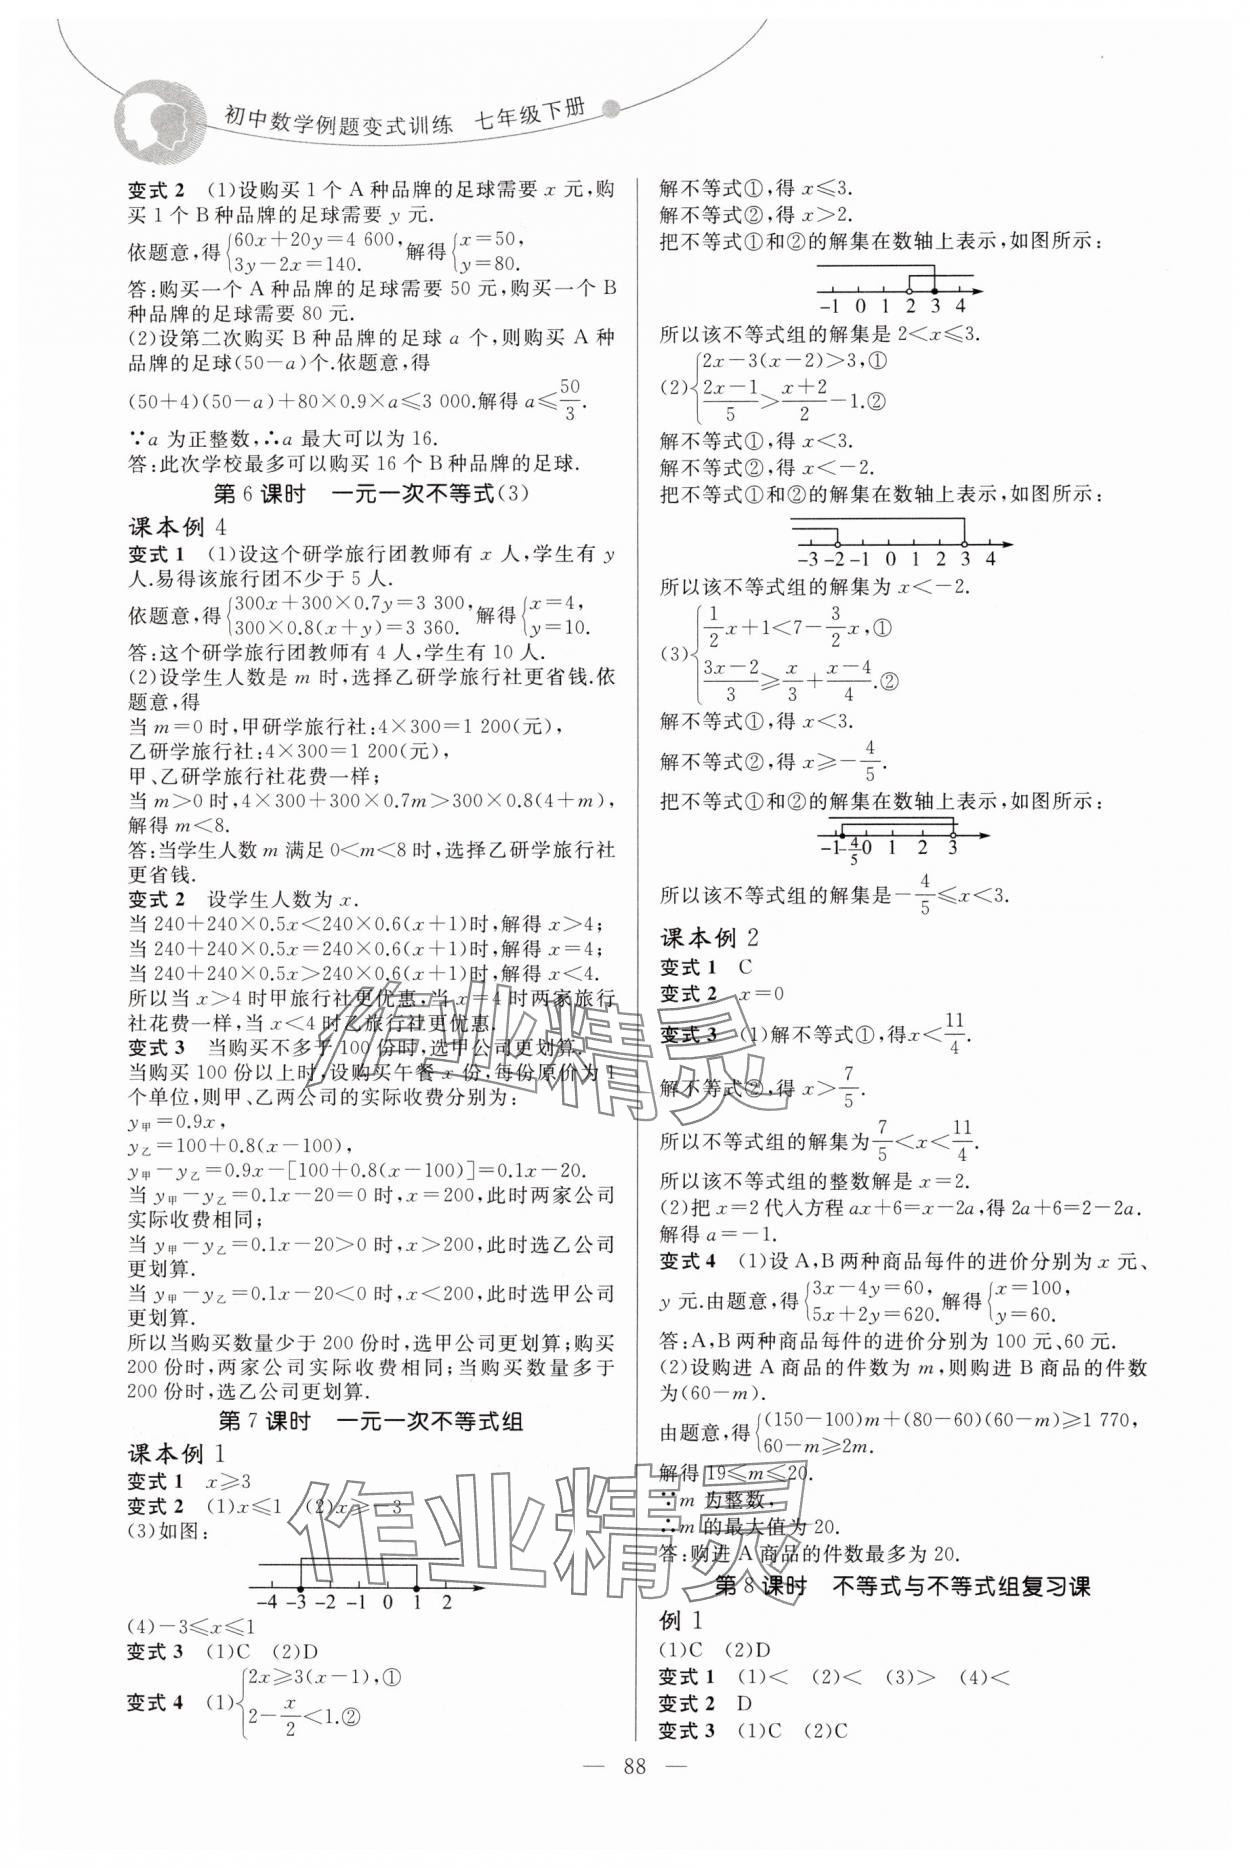 初中数学例题变式训练 七年级下册
变式2 (1)设购买1个A种品牌的足球需要x元,购
买1个B种品牌的足球需要y元.
依题意,得{60x+20y=4 600, 3y-2x=140. 解得{x=50, y=80.
答:购买一个A种品牌的足球需要50元,购买一个B
种品牌的足球需要80元.
(2)设第二次购买B种品牌的足球a个,则购买A种
品牌的足球(50-a)个.依题意,得
(50+4)(50-a)+80×0.9×a≤3 000.解得a≤50/3.
∵a为正整数,∴a最大可以为16.
答:此次学校最多可以购买16个B种品牌的足球.
第6课时 一元一次不等式(3)
课本例4
变式1 (1)设这个研学旅行团教师有x人,学生有y
人.易得该旅行团不少于5人.
依题意,得{300x+300×0.7y=3 300, 300×0.8(x+y)=3 360. 解得{x=4, y=10.
答:这个研学旅行团教师有4人,学生有10人.
(2)设学生人数是m时,选择乙研学旅行社更省钱.依
题意,得
当m=0时,甲研学旅行社:4×300=1 200(元),
乙研学旅行社:4×300=1 200(元),
甲、乙研学旅行社花费一样;
当m>0时,4×300+300×0.7m>300×0.8(4+m),
解得m<8.
答:当学生人数m满足0<m<8时,选择乙研学旅行社
更省钱.
变式2 设学生人数为x.
当240+240×0.5x<240×0.6(x+1)时,解得x>4;
当240+240×0.5x=240×0.6(x+1)时,解得x=4;
当240+240×0.5x>240×0.6(x+1)时,解得x<4.
所以当x>4时甲旅行社更优惠,当x=4时两家旅行
社花费一样,当x<4时乙旅行社更优惠.
变式3 当购买不多于100份时,选甲公司更划算.
当购买100份以上时,设购买午餐x份,每份原价为1
个单位,则甲、乙两公司的实际收费分别为:
y甲=0.9x,
y乙=100+0.8(x-100),
y甲-y乙=0.9x-[100+0.8(x-100)]=0.1x-20.
当y甲-y乙=0.1x-20=0时,x=200,此时两家公司
实际收费相同;
当y甲-y乙=0.1x-20>0时,x>200,此时选乙公司
更划算.
当y甲-y乙=0.1x-20<0时,x<200,此时选甲公司
更划算.
所以当购买数量少于200份时,选甲公司更划算;购买
200份时,两家公司实际收费相同;当购买数量多于
200份时,选乙公司更划算.
第7课时 一元一次不等式组
课本例1
变式1 x≥3
变式2 (1)x≤1 (2)x≥-3
(3)如图:
-4 -3 -2 -1 0 1 2
(4)-3≤x≤1
变式3 (1)C (2)D
变式4 (1){2x≥3(x-1),① 2-x/2<1.②
解不等式①,得x≤3.
解不等式②,得x>2.
把不等式①和②的解集在数轴上表示,如图所示:
-1 0 1 2 3 4
所以该不等式组的解集是2<x≤3.
(2){2x-3(x-2)>3,① (2x-1)/5>(x+2)/2-1.②
解不等式①,得x<3.
解不等式②,得x<-2.
把不等式①和②的解集在数轴上表示,如图所示:
-3 -2 -1 0 1 2 3 4
所以该不等式组的解集为x<-2.
(3){1/2x+1<7-3/2x,① (3x-2)/3≥x/3+(x-4)/4.②
解不等式①,得x<3.
解不等式②,得x≥-4/5.
把不等式①和②的解集在数轴上表示,如图所示:
-1 -4/5 0 1 2 3
所以该不等式组的解集是-4/5≤x<3.
课本例2
变式1 C
变式2 x=0
变式3 (1)解不等式①,得x<11/4.
解不等式②,得x>7/5.
所以不等式组的解集为7/5<x<11/4.
所以该不等式组的整数解是x=2.
(2)把x=2代入方程ax+6=x-2a,得2a+6=2-2a.
解得a=-1.
变式4 (1)设A,B两种商品每件的进价分别为x元、
y元.由题意,得{3x-4y=60, 5x+2y=620. 解得{x=100, y=60.
答:A,B两种商品每件的进价分别为100元、60元.
(2)设购进A商品的件数为m,则购进B商品的件数
为(60-m).
由题意,得{(150-100)m+(80-60)(60-m)≥1 770, 60-m≥2m.
解得19≤m≤20.
∵m为整数,
∴m的最大值为20.
答:购进A商品的件数最多为20.
第8课时 不等式与不等式组复习课
例1
(1)C (2)D
变式1 (1)< (2)< (3)> (4)<
变式2 D
变式3 (1)C (2)C
— 88 —
作业精灵
作业精灵